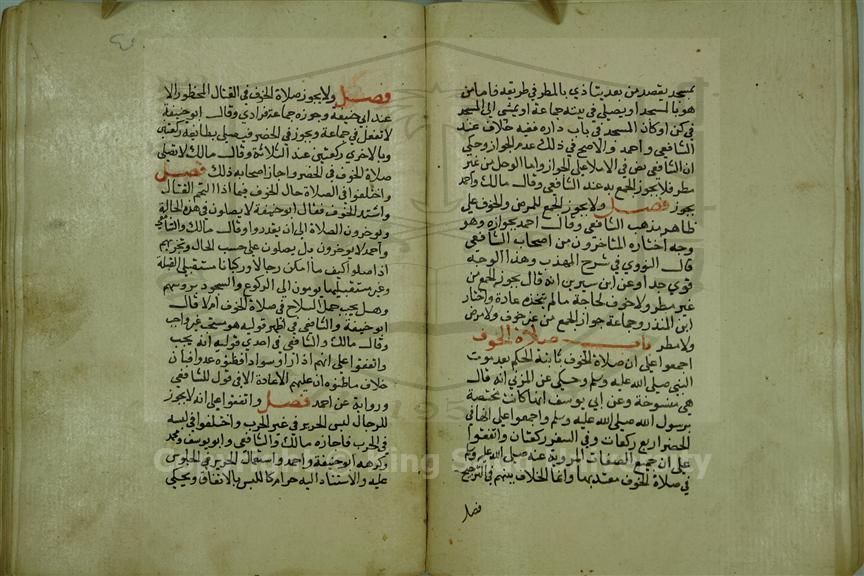 بمسجد يقصد من بعد يتأذي بالمطر في طريقه فاما من
هو بالمسجد او يصلي في بيته جماعة او يمشي الي المسجد
في كن او كان المسجد في باب داره ففيه خلاف عند
الشافعي واحمد والاصح في ذلك عدم الجواز وحكي
ان الشافعي نص في الاملا علي الجواز واما الوحل من غير
مطر فلا يجوز الجمع به عند الشافعي وقال مالك واحمد
يجوز فصل ولا يجوز الجمع للمرض والخوف علي
ظاهر مذهب الشافعي وقال احمد بجوازه وهو
وجه اختاره المتاخرون من اصحاب الشافعي
قال النووي في شرح المهذب وهذا الوجه
قوي جدا وعن ابن سيرين انه قال يجوز الجمع من
غير مطر ولا خوف لحاجة ما لم يتخذه عادة واختار
ابن المنذر وجماعة جواز الجمع من غير خوف ولا مرض
ولا مطر باب صلاة الخوف
اجمعوا علي ان صلاة الخوف ثابتة الحكم بعد موت
النبي صلي الله عليه وسلم وحكي عن المزني انه قال
هي منسوخة وعن ابي يوسف انها كانت مختصة
برسول الله صلي الله عليه وسلم واجمعوا علي انها في
الحضر اربع ركعات وفي السفر ركعتان واتفقوا
علي ان جميع الصفات المروية عنه صلي الله عليه وسلم
في صلاة الخوف معتد بها وانما الخلاف بينهم في الترجيح
فصل
فصل ولا يجوز صلاة الخوف في القتال المحظور الا
عند ابي حنيفة وجوزه جماعة فرادي وقال ابو حنيفة
لا تفعل في جماعة ويجوز في الحضر فيصلي بطائفة ركعتين
وبالاخري ركعتين عند الثلاثة وقال مالك لا تصلي
صلاة الخوف في الحضر واجاز اصحابه ذلك فصل
واختلفوا في الصلاة حال الخوف فيما اذا التحم القتال
واشتد الخوف فقال ابو حنيفة لا يصلون في هذه الحالة
ويوخرون الصلاة الي ان يقدروا وقال مالك والشافعي
واحمد لا يوخرون بل يصلون علي حسب الحال وتجزيهم
اذا صلوا كيف ما امكن رجالا وركبانا مستقبلي القبلة
وغير مستقبليها يومون الي الركوع والسجود بروسهم
وهل يجب حمل السلاح في صلاة الخوف ام لا قال
ابو حنيفة والشافعي في اظهر قوليه هو مستحب غير واجب
وقال مالك والشافعي في احدي قوليه انه يجب
واتفقوا علي انهم اذا راو سوادا فظنوه عدوا فبان
خلاف ما ظنوه ان عليهم الاعادة الا في قول للشافعي
ورواية عن احمد فصل واتفقوا علي انه لا يجوز
للرجال لبس الحرير في غير الحرب واختلفوا في لبسه
في الحرب فاجازه مالك والشافعي وابو يوسف ومحمد
وكرهه ابو حنيفة واحمد واستعمال الحرير في الجلوس
عليه والاستناد اليه حرام كاللبس بالاتفاق ويحكي